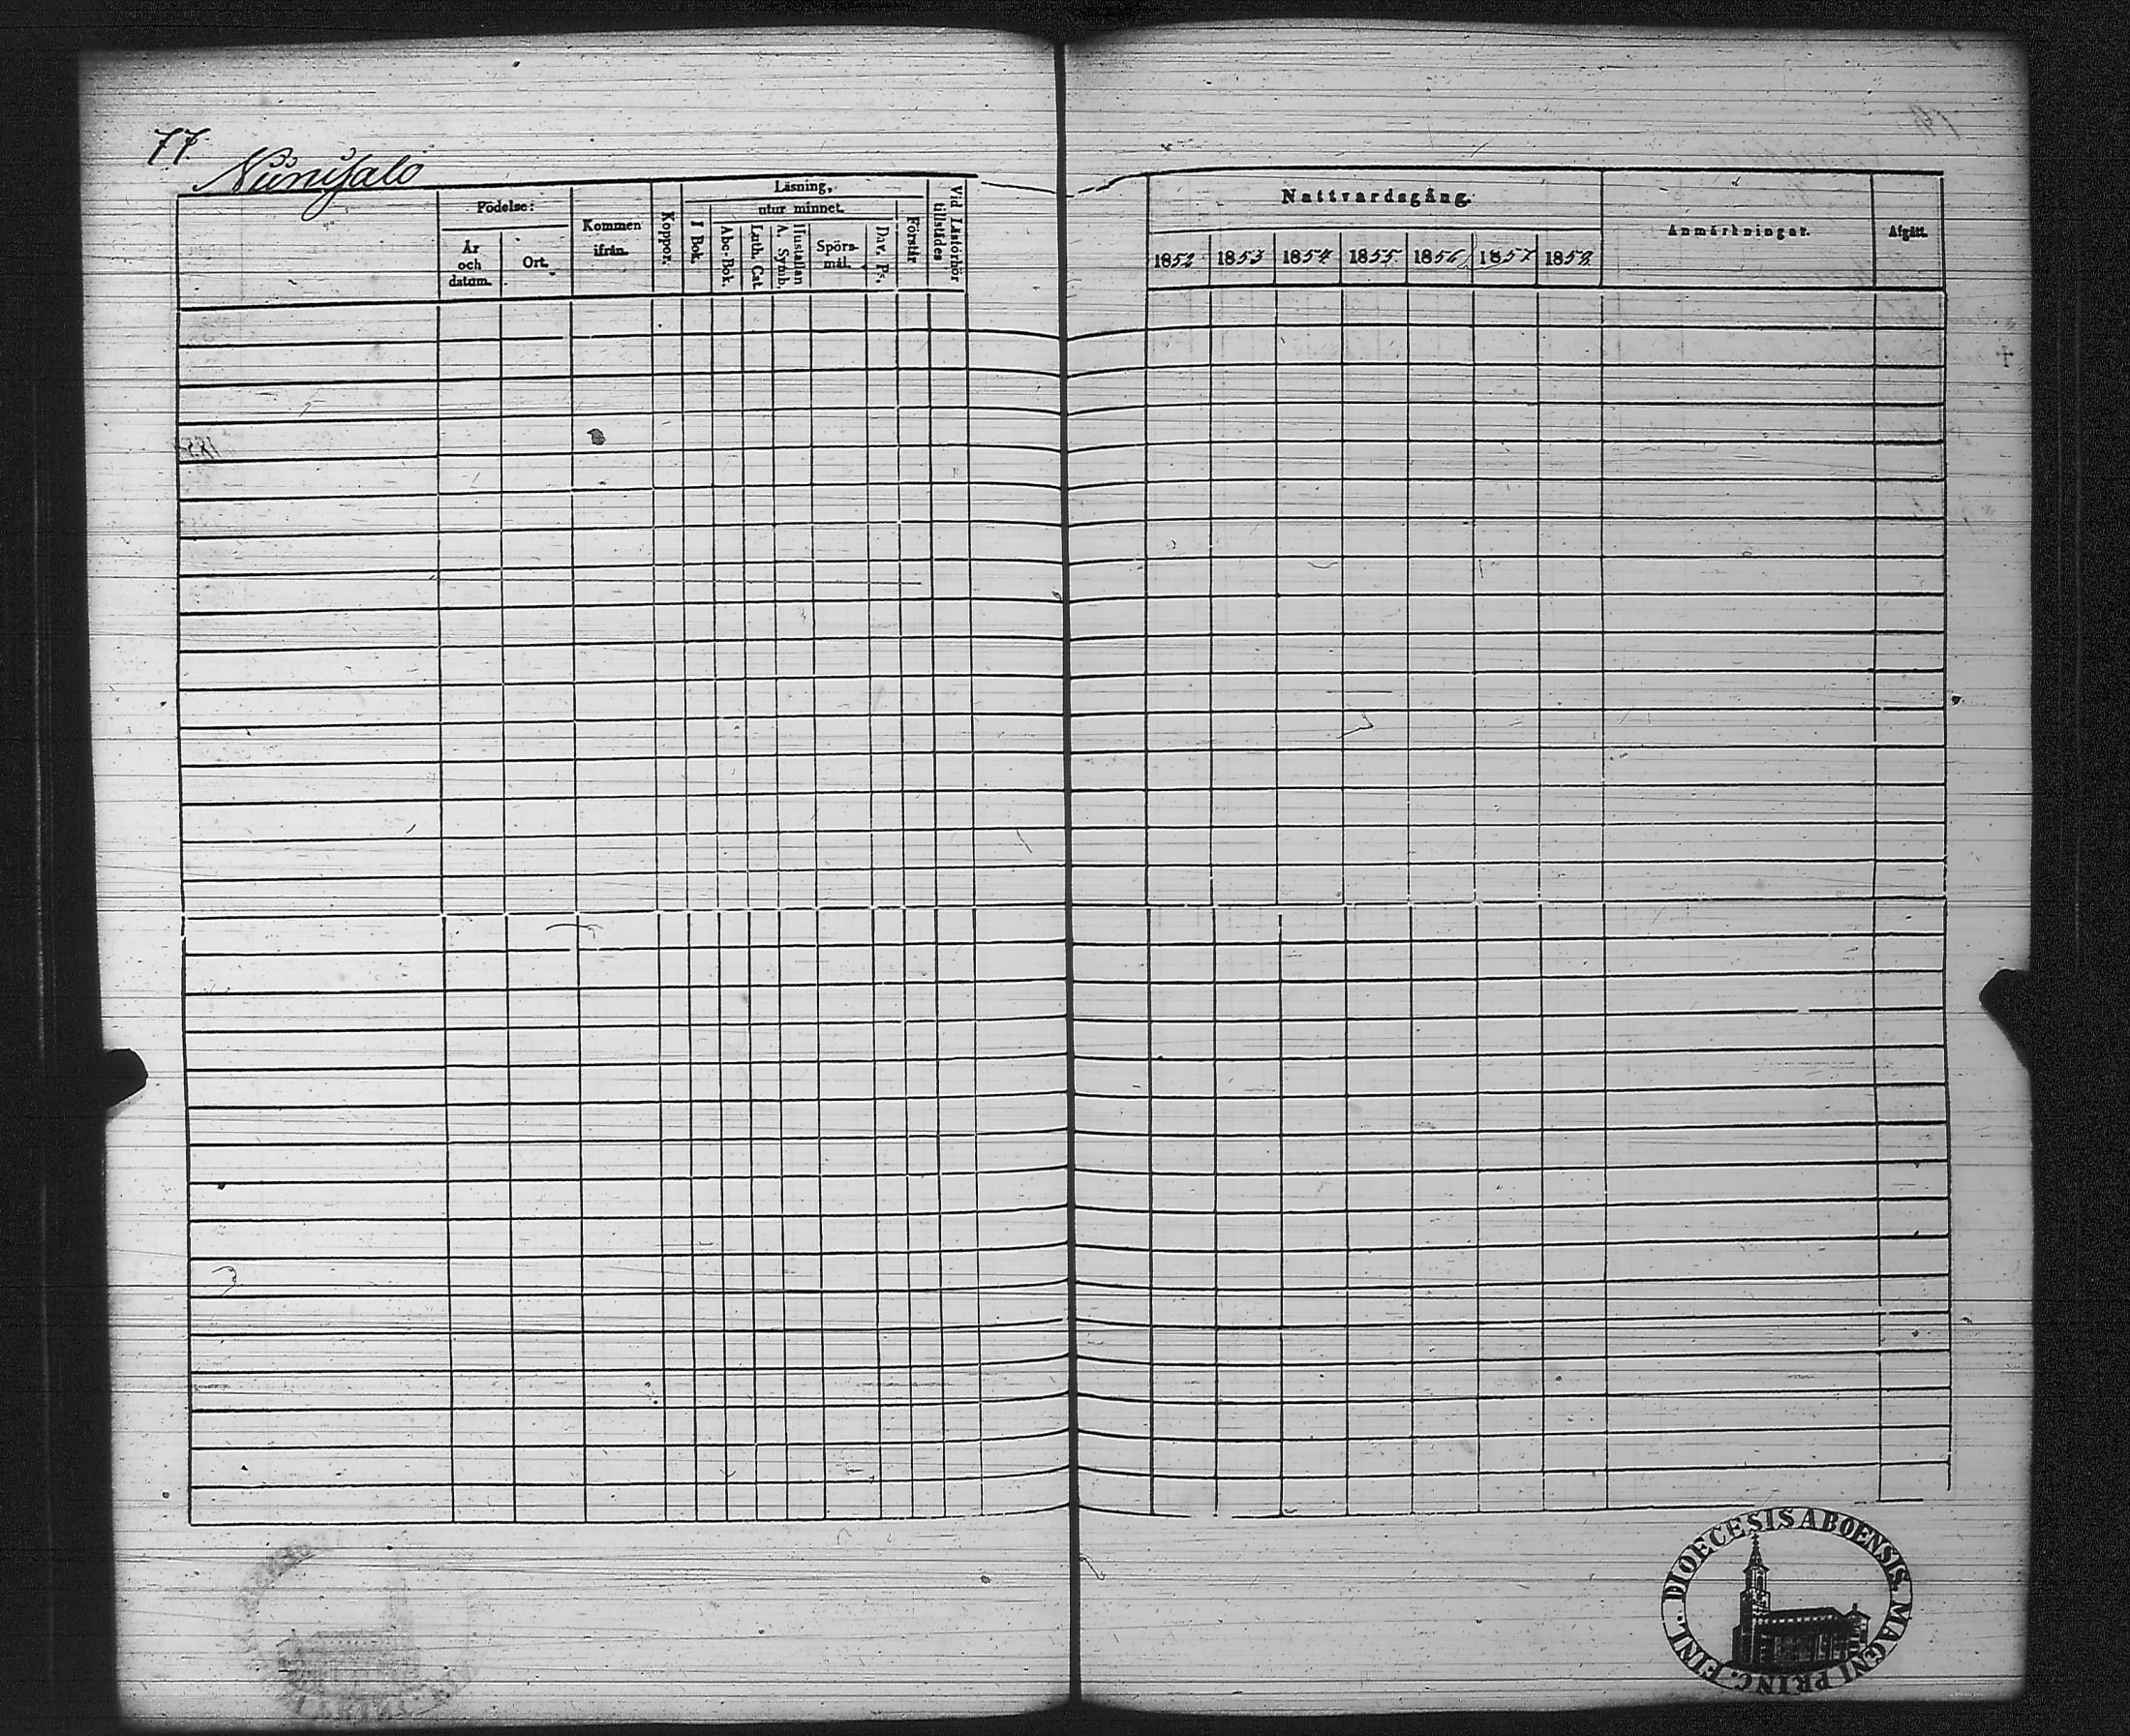 77.
Niinisalo
Födelse:
År
och
datum.
Ort.
Kommen
ifrån.
Koppor.
Läsning,
utur minnet.
I Bok.
Abc-Bok.
Luth. Cat
Hustaflan
A. Symb.
Spörs-
mål.
Dav. Ps.
Förstår
Vid Läsförhör
tillstädes
Nattvardsgång.
1852 1853 1854 1855 1856 1857 1858
Anmärkningar.
Afgått.
DIOECESIS ABOENSIS. MAGNI PRINC. FINL.